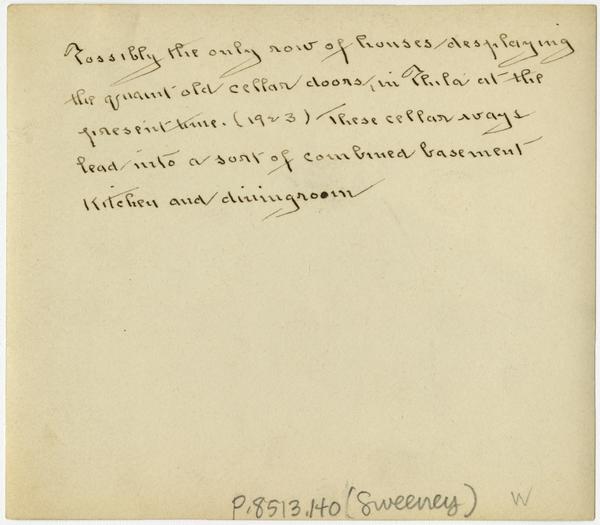 Possibly the only row of houses desplaying
the quaint old cellar doors, in Phila at the
present time. (1923) These cellar ways
lead into a sort of combined basement
Kitchen and diningroom
P.8513.140 (Sweeney) W